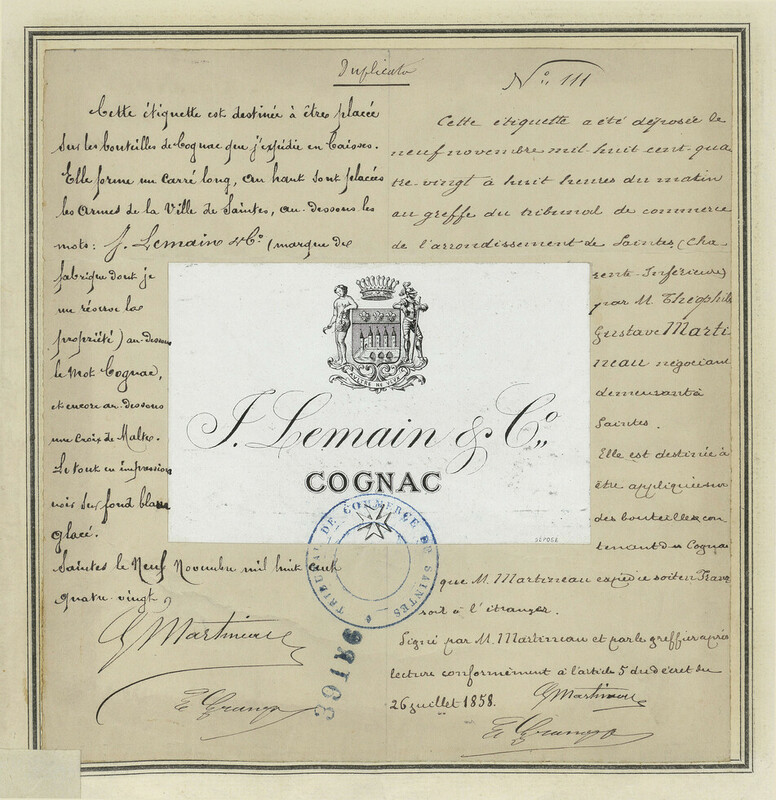 Duplicata
Nº 111
Cette étiquette est destinée à êtres placée
sur les bouteilles de Cognac que j'expédie en Caisses.
Elle forme un carré long, au haut sont placées
les Armes de la Ville de Saintes, au-dessous les
mots: J. Lemain & Cº (marque de
fabrique dont je
me réserve la
propriété) au-dessous
le Mot Cognac,
et encore au-dessous
une Croix de Malte.
Le tout en impression
noir sur fond blanc
glacé.
Saintes le Neuf Novembre mil huit cent
quatre-vingt
G Martineau
Cette étiquette a été déposée le
neuf novembre mil huit cent-qua
tre-vingt à huit heures du matin
au greffe du tribunal de commerce
de l'arrondissement de Saintes (Cha
rente-Inférieure)
par M. Théophile
Gustave Marti
neau négociant
demeurant à
Saintes.
Elle est destinée à
être appliquée sur
des bouteilles con
tenant du Cognac
que M. Martineau expédie soit en France
soit à l'étranger.
Signé par M. Martineau et par le greffier après
lecture conformément à l'article 5 du décret du
26 juillet 1858.
G Martineau
J. Lemain & Cº
COGNAC
TRIBUNAL DE COMMERCE DE SAINTES